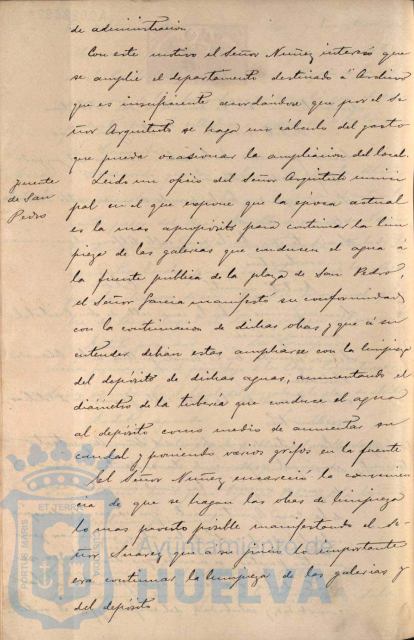 de administracion.
Con este motivo el Señor Nuñez interesó que
se amplie el departamento destinado á Archivo
que es insuficiente acordándose que por el Se-
ñor Arquitecto se haga un cálculo del gasto
que pueda ocasionar la ampliacion del local.
fuente
de San
Pedro
Leido un oficio del Señor Arquitecto munici
pal en el que expone que la época actual
es la mas aproposito para continuar la lim
pieza de las galerias que conducen el agua á
la fuente pública de la plaza de San Pedro,
el Señor Garcia manifestó su conformidad
con la continuacion de dichas obras y que á su
entender debian estas ampliarse con la limpieza
del depósito de dichas aguas, aumentando el
diámetro de la tuberia que conduce el agua
al depósito como medio de aumentar su
caudal y poniendo varios grifos en la fuente
El Señor Nuñez encareció la convenien
cia de que se hagan las obras de limpieza
lo mas pronto posible manifestando el Se-
ñor Suarez que á su juicio lo importante
era continuar la limpieza de las galerias y
del depósito
PORTUS MARIS
ET TERRÆ
CUSTODIA
Ayuntamiento de
HUELVA